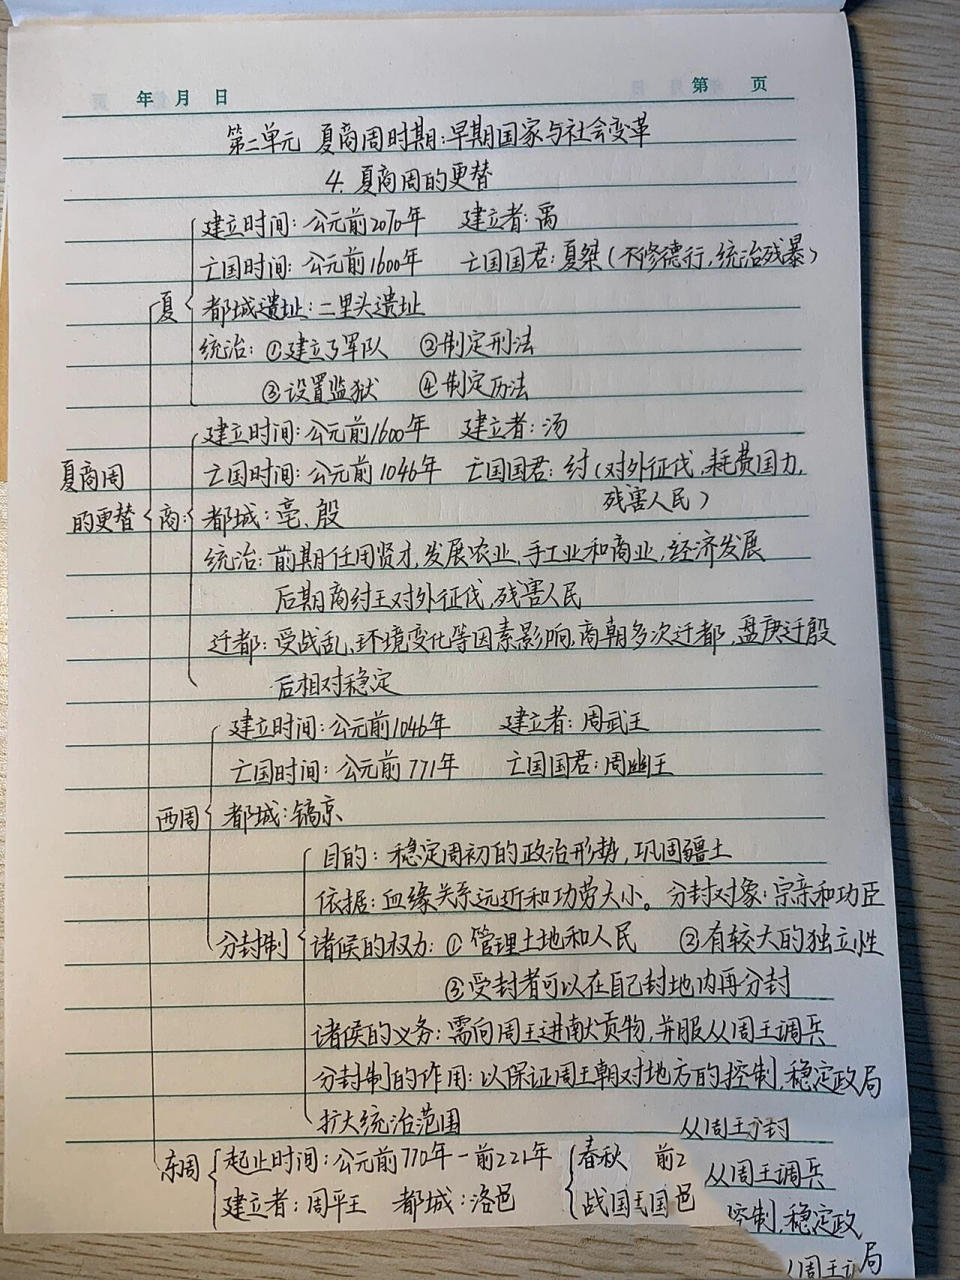 年 月 日 第 页
第二单元 夏商周时期:早期国家与社会变革
4.夏商周的更替
建立时间:公元前2070年 建立者:禹
亡国时间:公元前1600年 亡国国君:夏桀(不修德行,统治残暴)
夏
都城遗址:二里头遗址
统治:①建立了军队 ②制定刑法
③设置监狱 ④制定历法
建立时间:公元前1600年 建立者:汤
夏商周
的更替
亡国时间:公元前1046年 亡国国君:纣(对外征伐,耗费国力,
残害人民)
商:
都城:亳、殷
统治:前期任用贤才,发展农业、手工业和商业,经济发展
后期商纣王对外征伐,残害人民
迁都:受战乱、环境变化等因素影响,商朝多次迁都,盘庚迁殷
后相对稳定
建立时间:公元前1046年 建立者:周武王
亡国时间:公元前771年 亡国国君:周幽王
西周
都城:镐京
目的:稳定周初的政治形势,巩固疆土
依据:血缘关系远近和功劳大小。分封对象:宗亲和功臣
分封制
诸候的权力:① 管理土地和人民 ②有较大的独立性
③受封者可以在自己封地内再分封
诸候的义务:需向周王进献贡物,并服从周王调兵
分封制的作用:以保证周王朝对地方的控制,稳定政局
扩大统治范围
从周王分封
东周
起止时间:公元前770年-前221年
春秋 前2
从周王调兵
建立者:周平王 都城:洛邑
战国王国邑
控制,稳定政
局